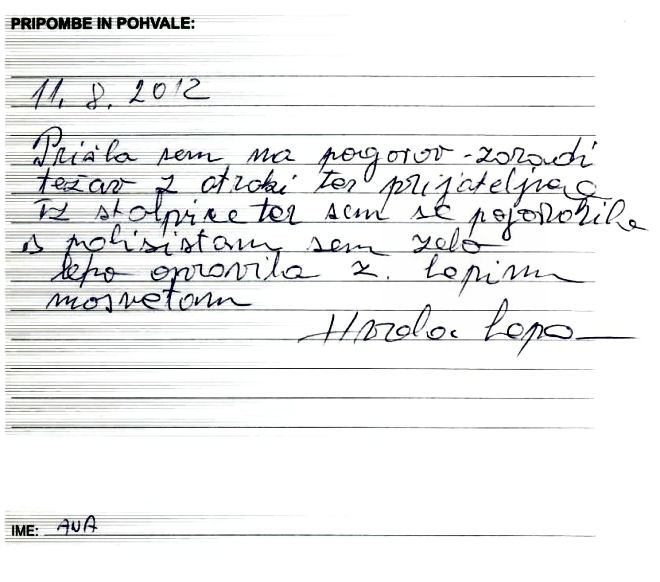 PRIPOMBE IN POHVALE:
11. 8. 2012
Prišla sem na pogovov - zoradi
težav z otroki ter prijateljico
Iz stolpice ter sem se pogovorila
s polisistam sem zelo
lepo opravila z. lepim
nasvetam
Hvala lepa
IME: ANA